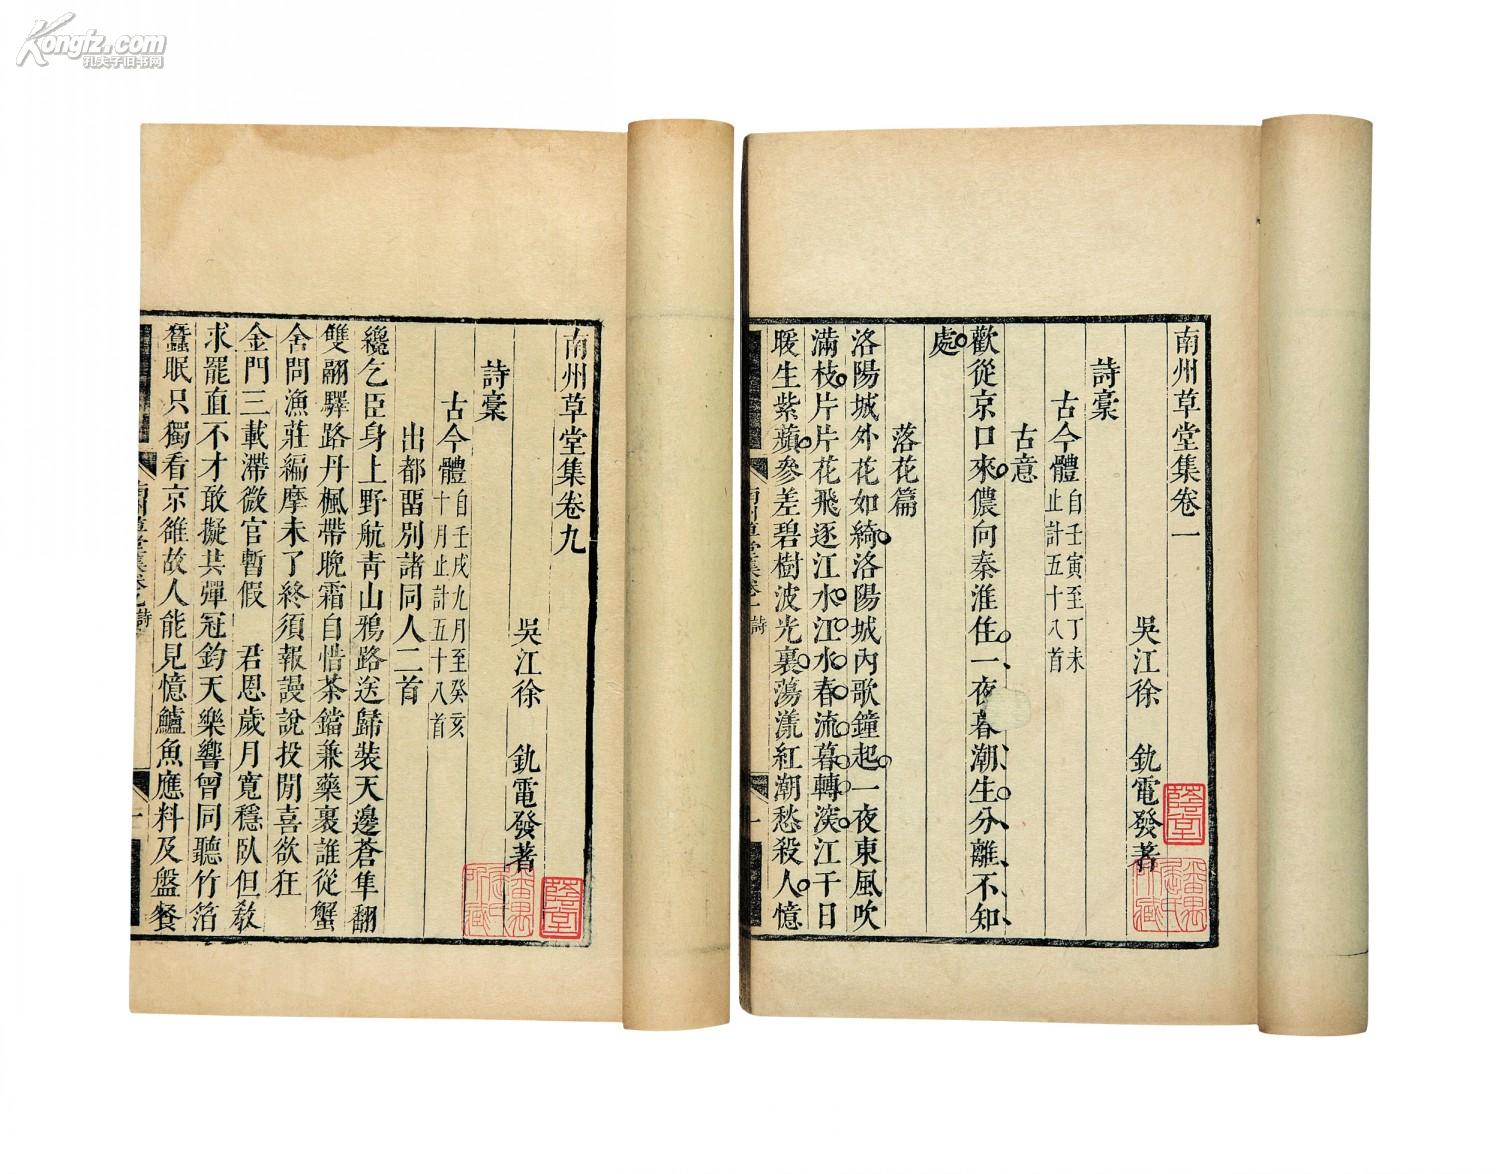 Kongfz.com
孔夫子旧书网
南州草堂集卷一
吳江徐 釚電發著
詩稾
古今體 自壬寅至丁未
止計五十八首
古意
歡從京口來儂向秦淮住一夜暮潮生分離不知
處
落花篇
洛陽城外花如綺洛陽城內歌鐘起一夜東風吹
滿枝片片花飛逐江水江水春流暮轉深江干日
暖生紫蘋參差碧樹波光裏蕩漾紅潮愁殺人憶
南州草堂集卷一 詩 一
南州草堂集卷九
吳江徐 釚電發著
詩稾
古今體 自壬戌九月至癸亥
十月止計五十八首
出都畱別諸同人二首
纔乞臣身上野航靑山鴉路送歸裝天邊蒼隼翻
雙翮驛路丹楓帶晚霜自惜茶鐺兼藥裹誰從蟹
舍問漁莊編摩未了終須報謾說投閒喜欲狂
金門三載滯微官暫假 君恩歲月寬穩臥但敎
求罷直不才敢擬共彈冠鈞天樂響曾同聽竹箔
蠶眠只獨看京雒故人能見憶鱸魚應料及盤餐